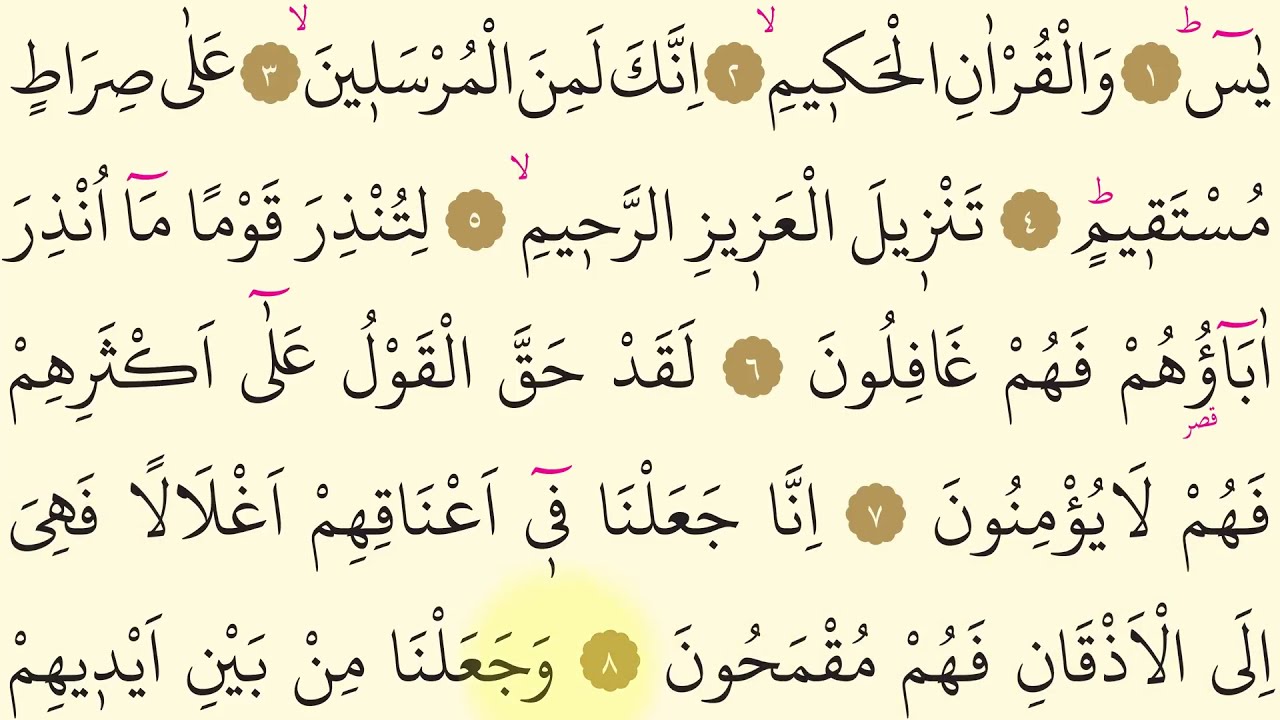 يٰسٓ ۚ ﴿١﴾ وَالْقُرْاٰنِ الْحَكٖيمِۙ ﴿٢﴾ اِنَّكَ لَمِنَ الْمُرْسَلٖينَۙ ﴿٣﴾ عَلٰى صِرَاطٍ
مُسْتَقٖيمٍؕ ﴿٤﴾ تَنْزٖيلَ الْعَزٖيزِ الرَّحٖيمِۙ ﴿٥﴾ لِتُنْذِرَ قَوْمًا مَٓا اُنْذِرَ
اٰبَٓاؤُ۬هُمْ فَهُمْ غَافِلُونَ ﴿٦﴾ لَقَدْ حَقَّ الْقَوْلُ عَلٰٓى اَكْثَرِهِمْ
قصر
فَهُمْ لَا يُؤْمِنُونَ ﴿٧﴾ اِنَّا جَعَلْنَا فٖٓي اَعْنَاقِهِمْ اَغْلَالًا فَهِيَ
اِلَى الْاَذْقَانِ فَهُمْ مُقْمَحُونَ ﴿٨﴾ وَجَعَلْنَا مِنْ بَيْنِ اَيْدٖيهِمْ